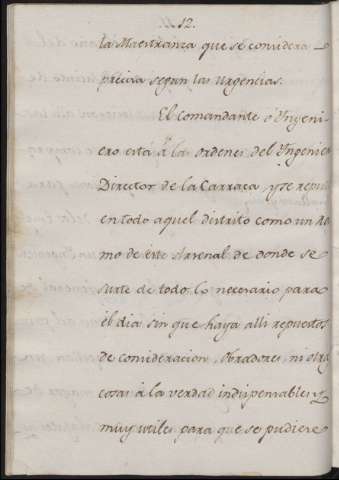 12.
la Maestranza que se considera
precisa segun las urgencias.
El Comandante ó Ingeni-
ero está á las ordenes del Ingeniero
Director de la Carraca y se reputa
en todo aquel distrito como un Ra-
mo de este Arsenal de donde se
surte de todo lo necesario para
el dia sin que haya alli repuestos
de consideracion, obradores, ni otras
cosas á la verdad indispensables y
muy utiles para que se pudiere